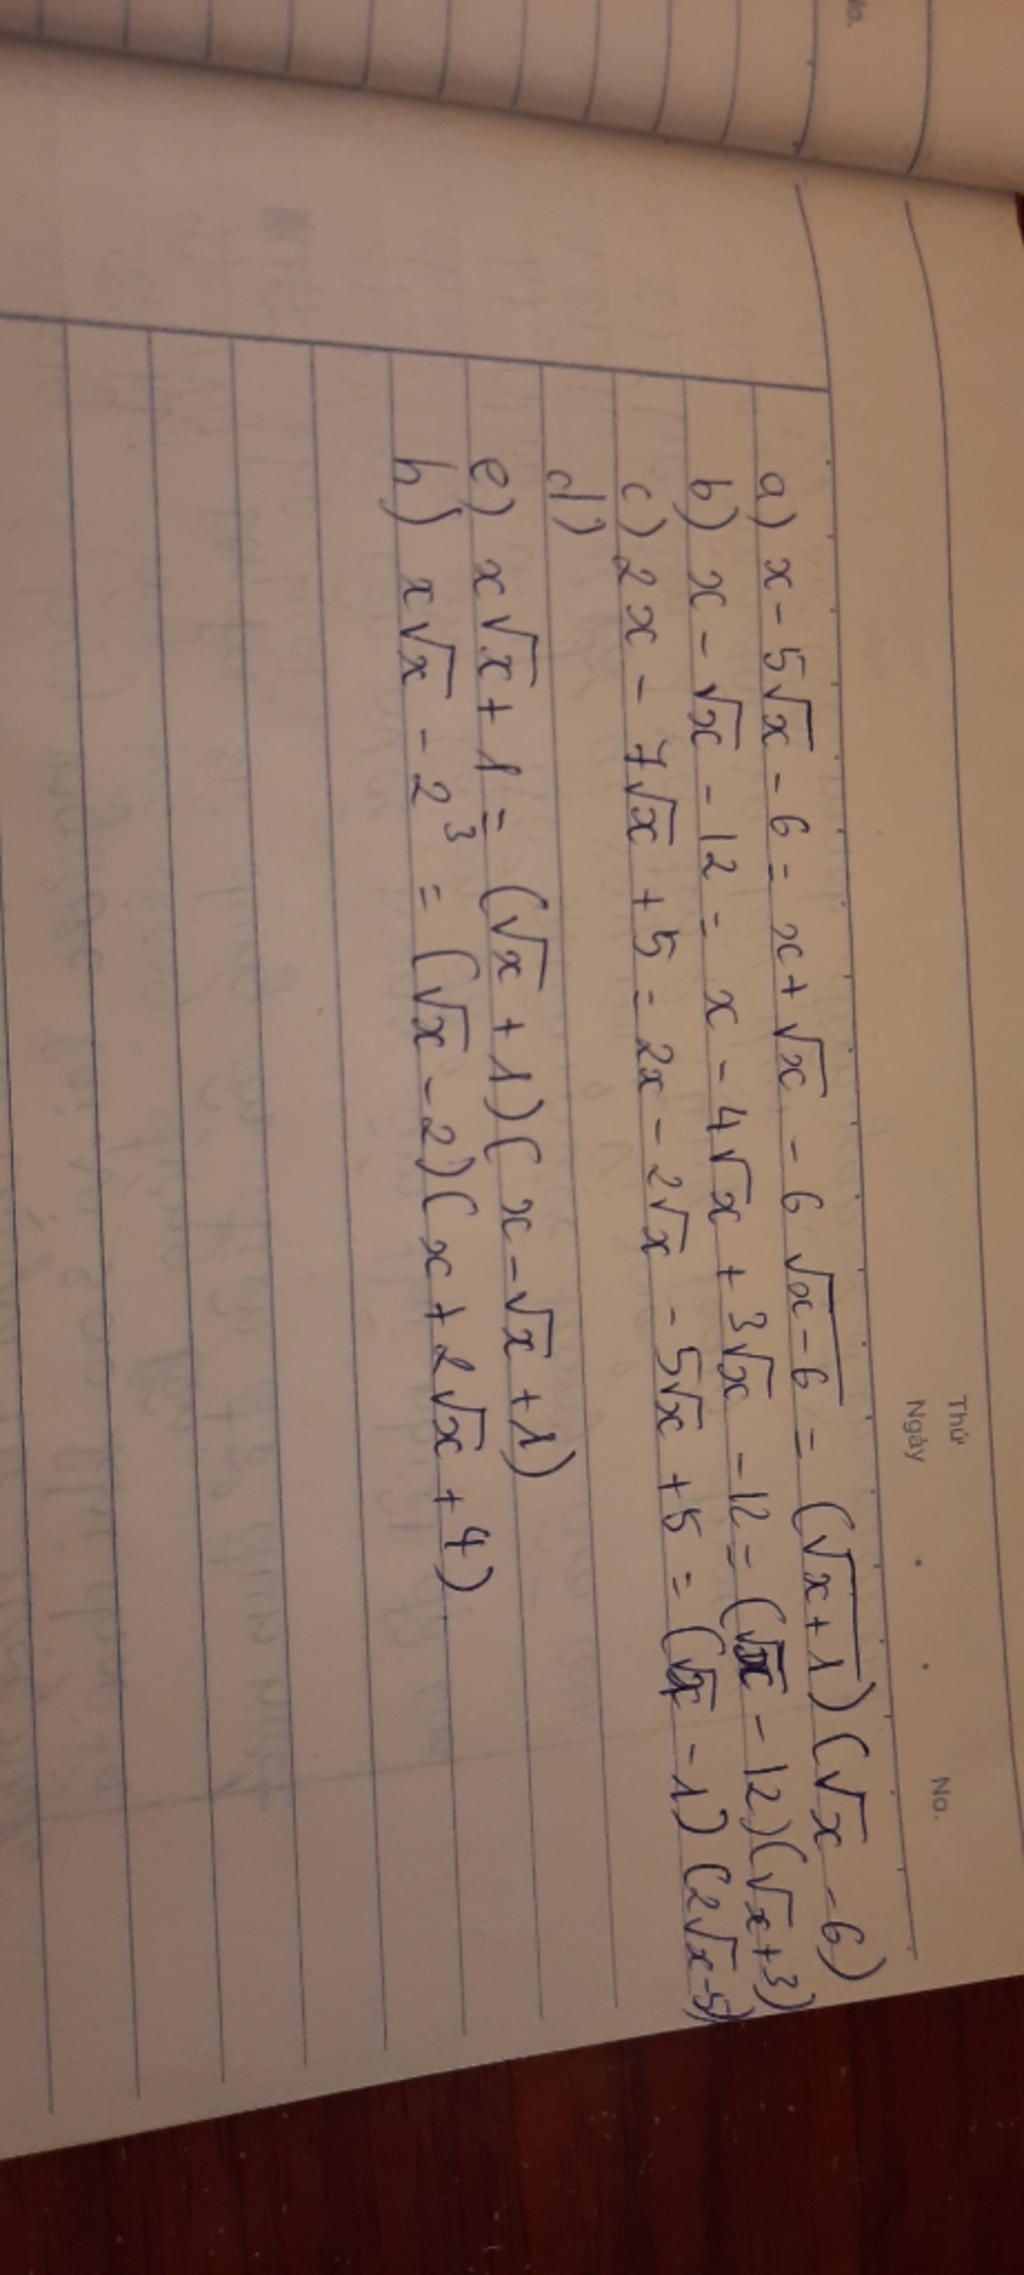 Thứ
Ngày No.
a) x - 5√x - 6 = x + √x - 6√(x - 6) = (√(x + 1))(√x - 6)
b) x - √x - 12 = x - 4√x + 3√x - 12 = (√x - 12)(√x + 3)
c) 2x - 7√x + 5 = 2x - 2√x - 5√x + 5 = (√x - 1)(2√x - 5)
d)
e) x√x + 1 = (√x + 1)(x - √x + 1)
h) x√x - 2³ = (√x - 2)(x + 2√x + 4)